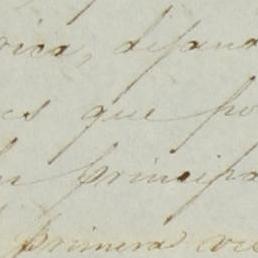 rica, dejand
es que po
su principa
primera vis